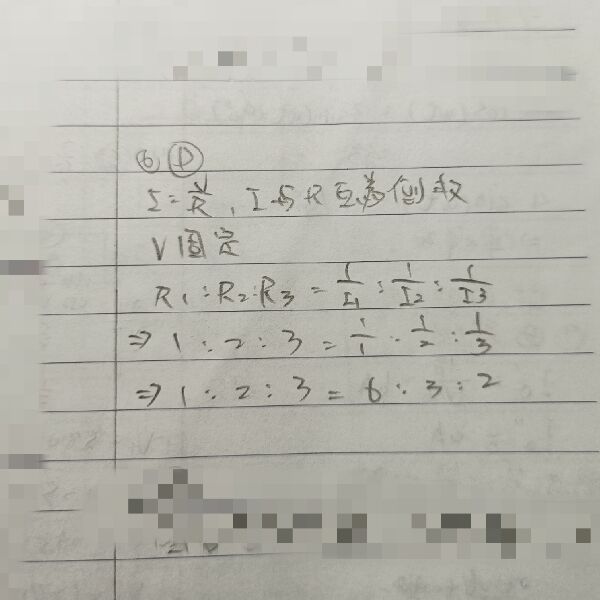 ⑥ Ⓓ
I = V/R , I与R互為倒叔
V固定
R₁ : R₂ : R₃ = 1/I₁ : 1/I₂ : 1/I3
⇒ 1 : 2 : 3 = 1/1 : 1/2 : 1/3
⇒ 1 : 2 : 3 = 6 : 3 : 2